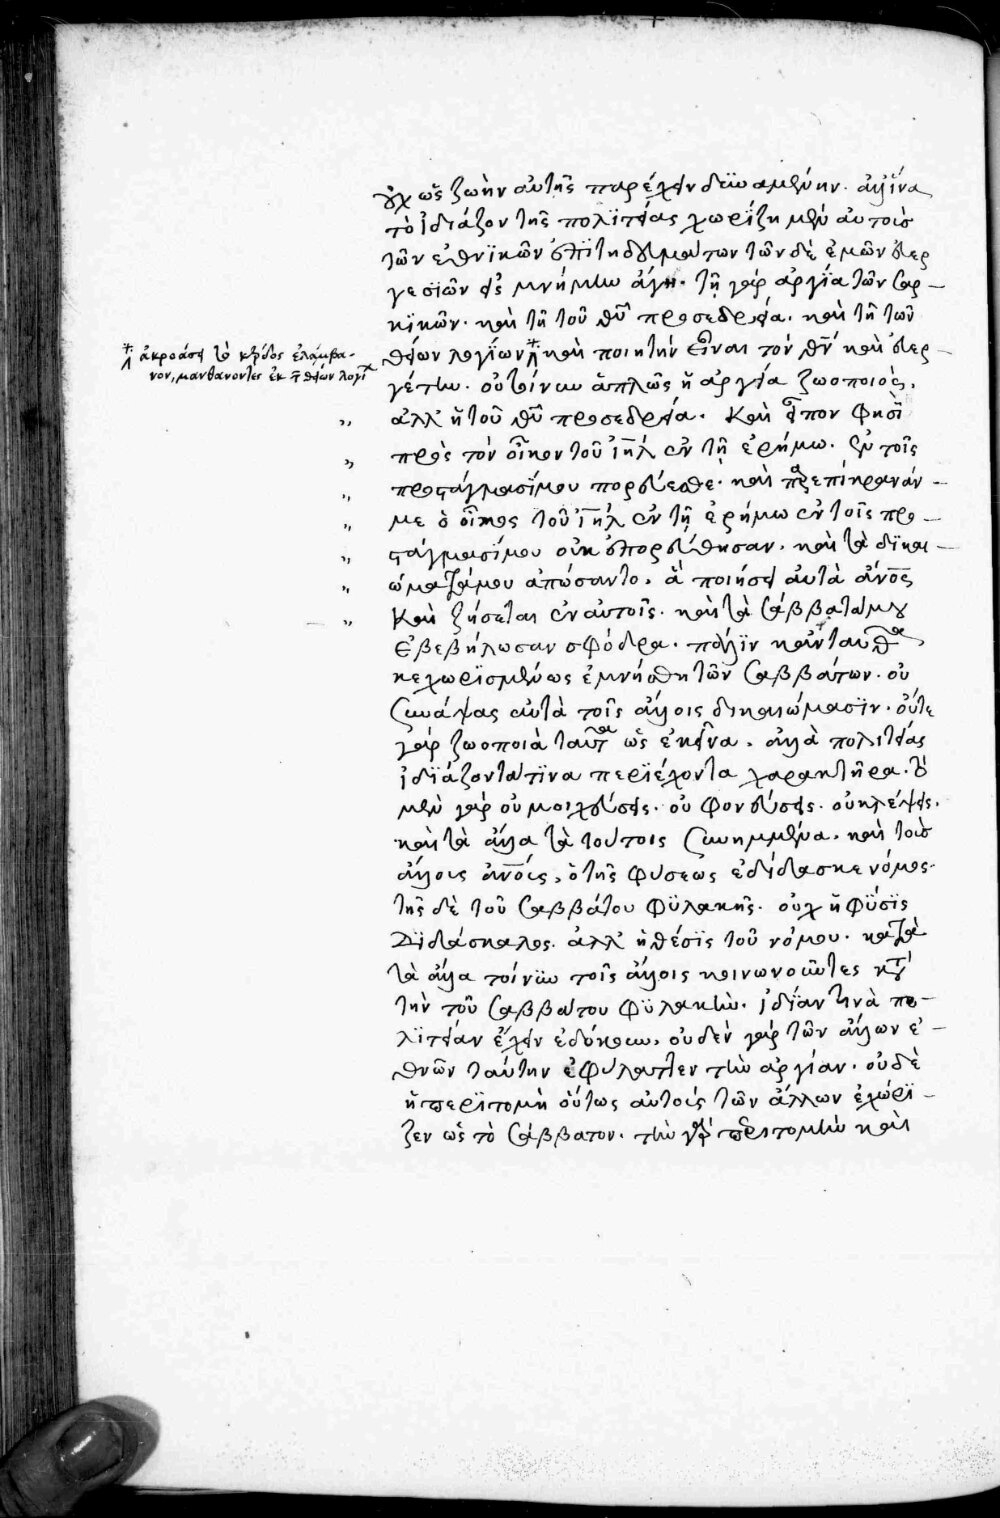 οὐχ ὡς ζωὴν αὐτῆς παρέχειν δυναμένην. ἀλλ' ἵνα
τὸ ἰδιάζον τῆς πολϊτείας χωρίζη μὲν αὐτοὺς
τῶν ἐθνϊκῶν ἐπϊτηδευμάτων τῶν δὲ ἐμῶν εὐερ
γεσϊῶν εἰς μνήμην ἄγη. τῇ γὰρ ἀργΐα τῶν σαρ–
κϊκῶν. καὶ τῇ τοῦ θῦ προσεδρεία. καὶ τῇ τῶν
θείων λογΐων καὶ ποιητὴν εἶναι τὸν θν καὶ εὐερ–
γέτην. οὐ τοίνυν ἁπλῶς ἡ ἀργία ζωοποιὸς,
ἀλλ' ἡ τοῦ θῦ προσεδρεία. Καὶ εἶπον φησὶ
πρὸς τὸν οἶκον τοῦ ἰηλ ἐν τῇ ἐρήμω. ἐν τοῖς
προστάγμασΐ μου πορεύεσθε. καὶ παρεπίκρανάν–
με ὁ οἶκος τοῦ ἰηλ ἐν τῇ ἐρήμω ἐν τοῖς προ–
στάγμασΐ μου οὐκ ἐπορεύθησαν. καὶ τὰ δϊκαι–
ώματά μου ἀπώσαντο. ἃ ποιήσει αὐτὰ ἄνος
Καὶ ζήσεται ἐν αὐτοῖς. καὶ τὰ σάββατά μου
ἐβεβήλωσαν σφόδρα. πάλϊν κἀνταῦθα
κεχωρϊσμένως ἐμνήσθη τῶν σαββάτων. οὐ
συνάψας αὐτὰ τοῖς ἄλλοις δικαιώμασϊν. οὔτε
γὰρ ζωοποιὰ ταῦτα ὡς ἐκεῖνα. ἀλλὰ πολιτείας
ἰδϊάζοντά τϊνα περϊέχοντα χαρακτῆρα. τὸ
μὲν γὰρ οὐ μοιχεύσεις. οὐ φονεύσεις. οὐ κλέψεις.
καὶ τὰ ἄλλα τὰ τούτοις συνημμένα. καὶ τοὺς
ἄλλοις ἀνοις, ὁ τῆς φύσεως ἐδίδασκε νόμος.
τῆς δὲ τοῦ σαββάτου φϋλακῆς. οὐχ ἡ φΰσϊς
Δϊδάσκαλος. ἀλλ' ἡ θέσϊς τοῦ νόμου. κατὰ
τὰ ἄλλα τοίνϋν τοῖς ἄλλοις κοινωνοῦντες κατὰ
τὴν τοῦ σαββάτου φϋλακὴν. ἰδΐαν τινὰ πο–
λϊτείαν ἔχειν ἐδόκουν. οὐδὲν γὰρ τῶν ἄλλων ἐ–
θνῶν ταύτην ἐφύλαττεν τὴν ἀργίαν. οὐδὲ
ἡ περϊτομὴ οὕτως αὐτοὺς τῶν ἄλλων ἐχώρϊ–
ζεν ὡς τὸ σάββατον. τὴν γὰρ περιτομὴν καὶ
ἀκροάσει τὸ κέρδος ἐλάμβα–
νον, μανθάνοντες ἐκ τ θείων λογί